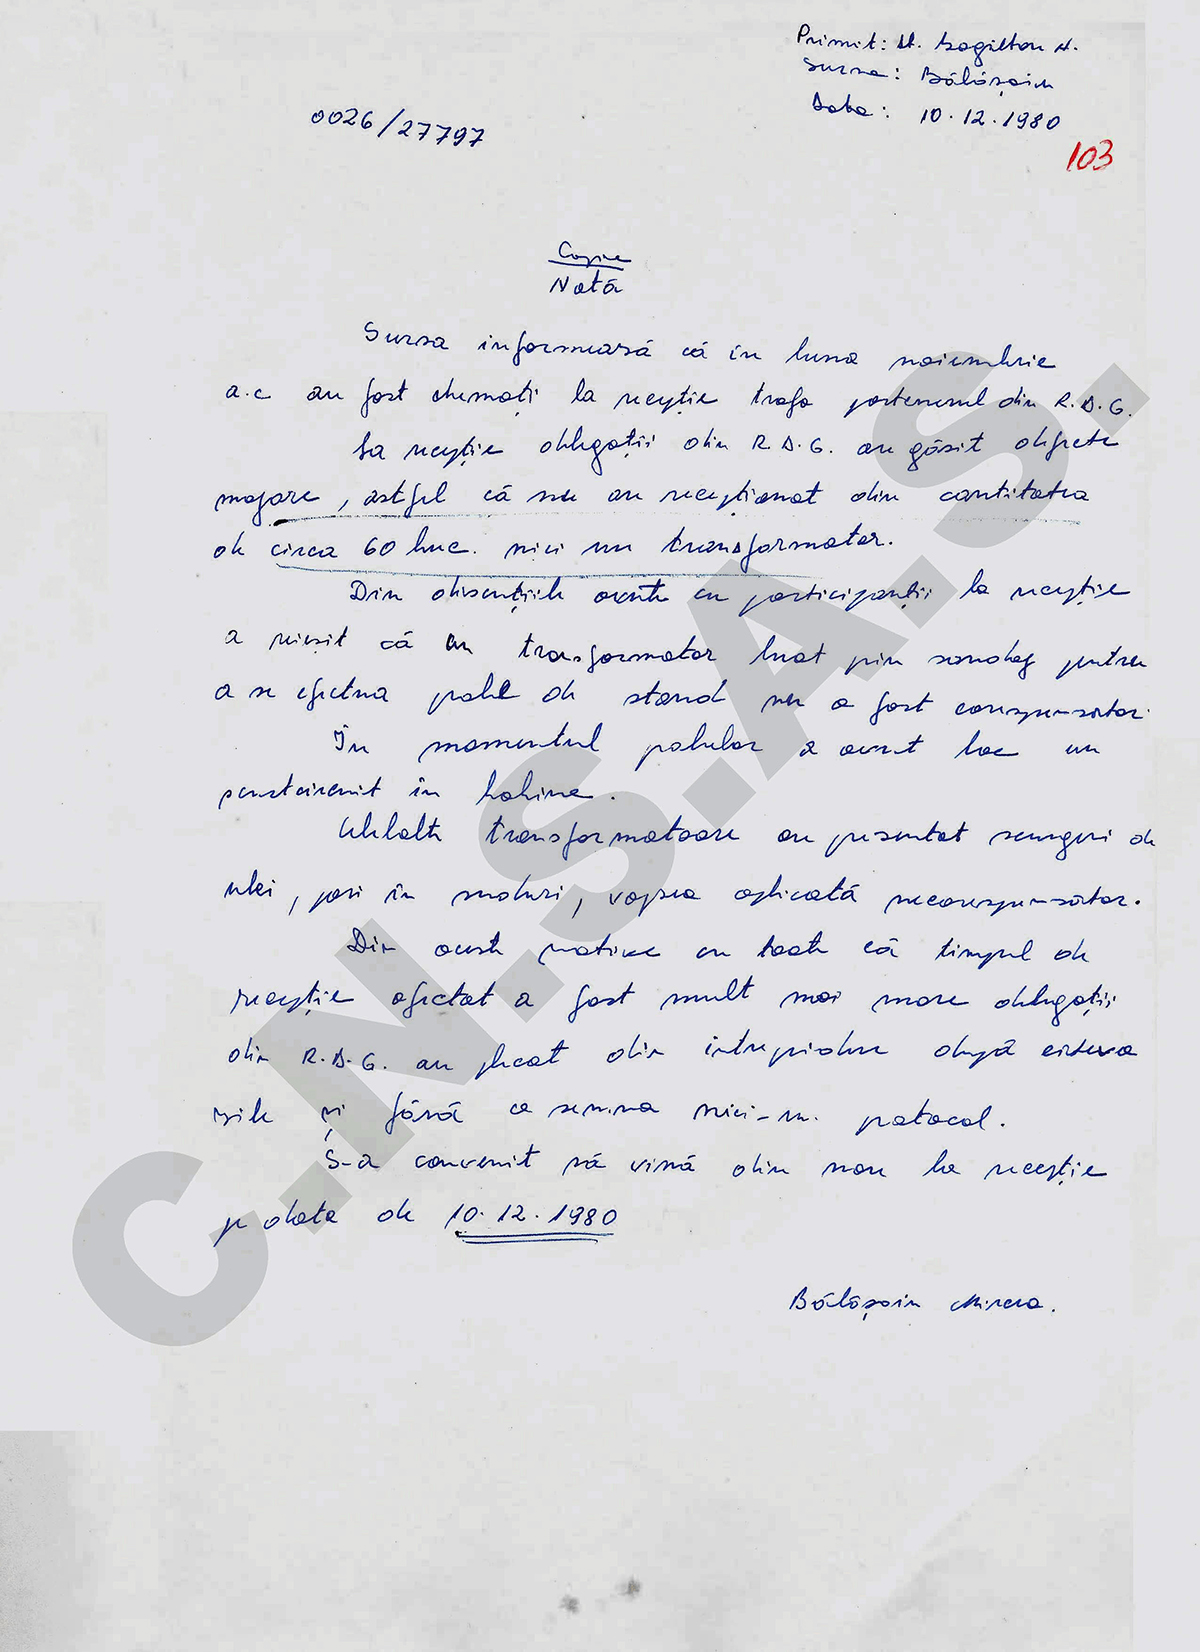 Primit: Lt.
Sursa: Bălășoiu
Data: 10.12.1980
0026/27797
103
Copie
Notă
Sursa informează că în luna noiembrie
a.c au fost chemați la recepție trafo partenerul din R.D.G.
La recepție delegații din R.D.G. au găsit defecte
majore, astfel că nu au recepționat din cantitatea
de circa 60 buc. nici un transformator.
Din discuțiile avute cu participanții la recepție
a reieșit că un transformator luat prin sondaj pentru
a se efectua probe de stand nu a fost corespunzător.
În momentul probelor a avut loc un
scurtcircuit în bobine.
Celelalte transformatoare au prezentat scurgeri de
ulei, pori în suduri, vopsea aplicată necorespunzător.
Din aceste motive cu toate că timpul de
recepție afectat a fost mult mai mare delegații
din R.D.G. au plecat din întreprindere după câteva
zile și fără ca semna nici-un. protocol.
S-a convenit să vină din nou la recepție
pe data de 10.12.1980
Bălășoiu Mircea.
C.N.S.A.S.